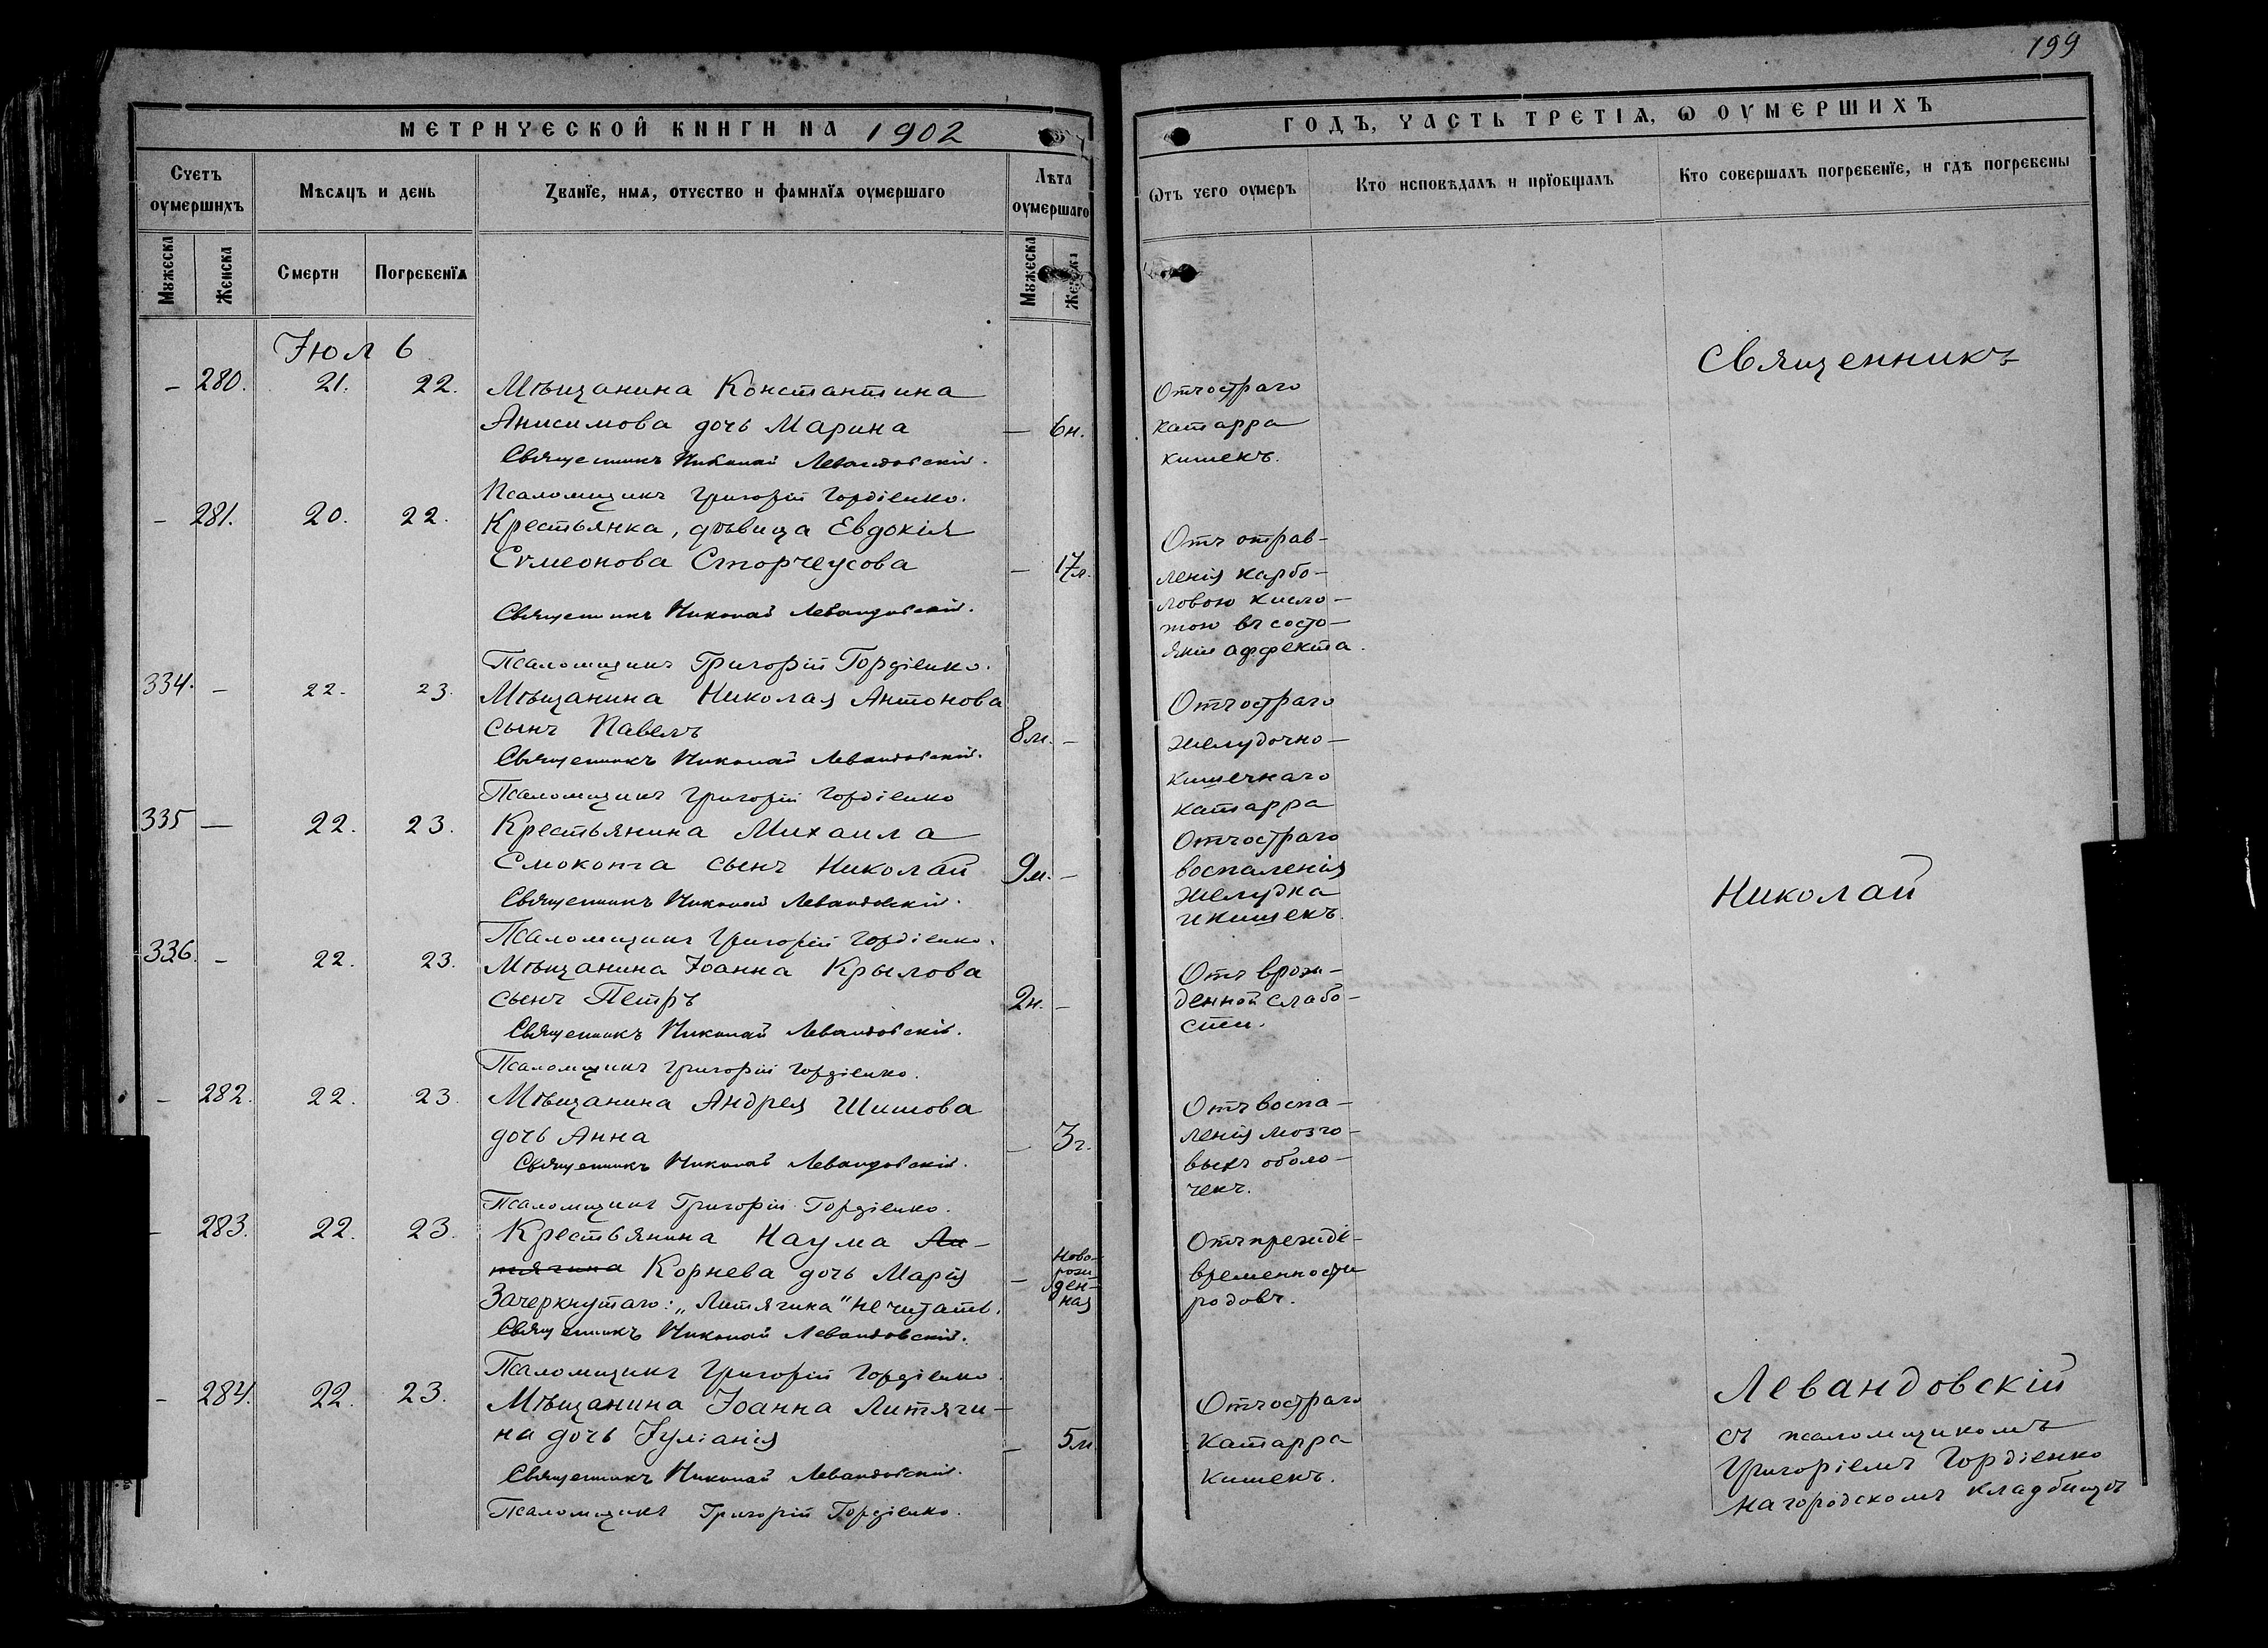 199
МЕТРИЧЕСКОЙ КНИГИ НА 1902
ГОДЪ, ЧАСТЬ ТРЕТІѦ, Ѡ ОУМЕРШИХЪ
Счетъ оумершихъ
Мѣсяцъ и день
Званїе, имѧ, отчество и фамилїѧ оумершаго
Лѣта оумершаго
Ѿтъ чего оумеръ
Кто исповѣдалъ и прїобщалъ
Кто совершалъ погребенїе, и гдѣ погребены
Мужеска
Женска
Смерти
Погребенїѧ
Мужеска
Женска
Іюль
– 280. 21. 22. Мѣщанина Константина
Анисимова дочь Марина – 6н.
Священникъ Николай Левандовскій.
Псаломщикъ Григорій Гордіенко.
Отъ остраго
катарра
кишекъ.
– 281. 20. 22. Крестьянка, дѣвица Евдокія
Сѵмеонова Сторчеусова – 17л.
Священникъ Николай Левандовскій.
Псаломщикъ Григорій Гордіенко.
Отъ отрав-
ленія карбо-
ловою кисло-
тою въ состо-
яніи аффекта.
334. – 22. 23. Мѣщанина Николая Антонова
сынъ Павелъ 8м. –
Священникъ Николай Левандовскій.
Псаломщикъ Григорій Гордіенко
Отъ остраго
желудочно-
кишечнаго
катарра
335 – 22. 23. Крестьянина Михаила
Смоконта сынъ Николай 9м. –
Священникъ Николай Левандовскій.
Псаломщикъ Григорій Гордіенко.
Отъ остраго
воспаленія
желудка
и кишекъ.
336. – 22. 23. Мѣщанина Іоанна Крылова
сынъ Петръ 2н. –
Священникъ Николай Левандовскій.
Псаломщикъ Григорій Гордіенко.
Отъ врож-
денной слабо-
сти.
– 282. 22. 23. Мѣщанина Андрея Шишова
дочь Анна – 3г.
Священникъ Николай Левандовскій.
Псаломщикъ Григорій Гордіенко.
Отъ воспа-
ленія мозго-
выхъ оболо-
чекъ.
– 283. 22. 23. Крестьянина Наума Ли-
тягина Корнева дочь Марія – Ново-
рож-
ден-
ная
Зачеркнутаго: „Литягина" не читать.
Священникъ Николай Левандовскій.
Псаломщикъ Григорій Гордіенко.
Отъ прежде-
временности
родовъ.
– 284. 22. 23. Мѣщанина Іоанна Литяги-
на дочь Іуліанія – 5м
Священникъ Николай Левандовскій.
Псаломщикъ Григорій Гордіенко.
Отъ остраго
катарра
кишекъ.
Священникъ
Николай
Левандовскій
съ псаломщикомъ
Григоріемъ Гордіенко
на городскомъ кладбищѣ